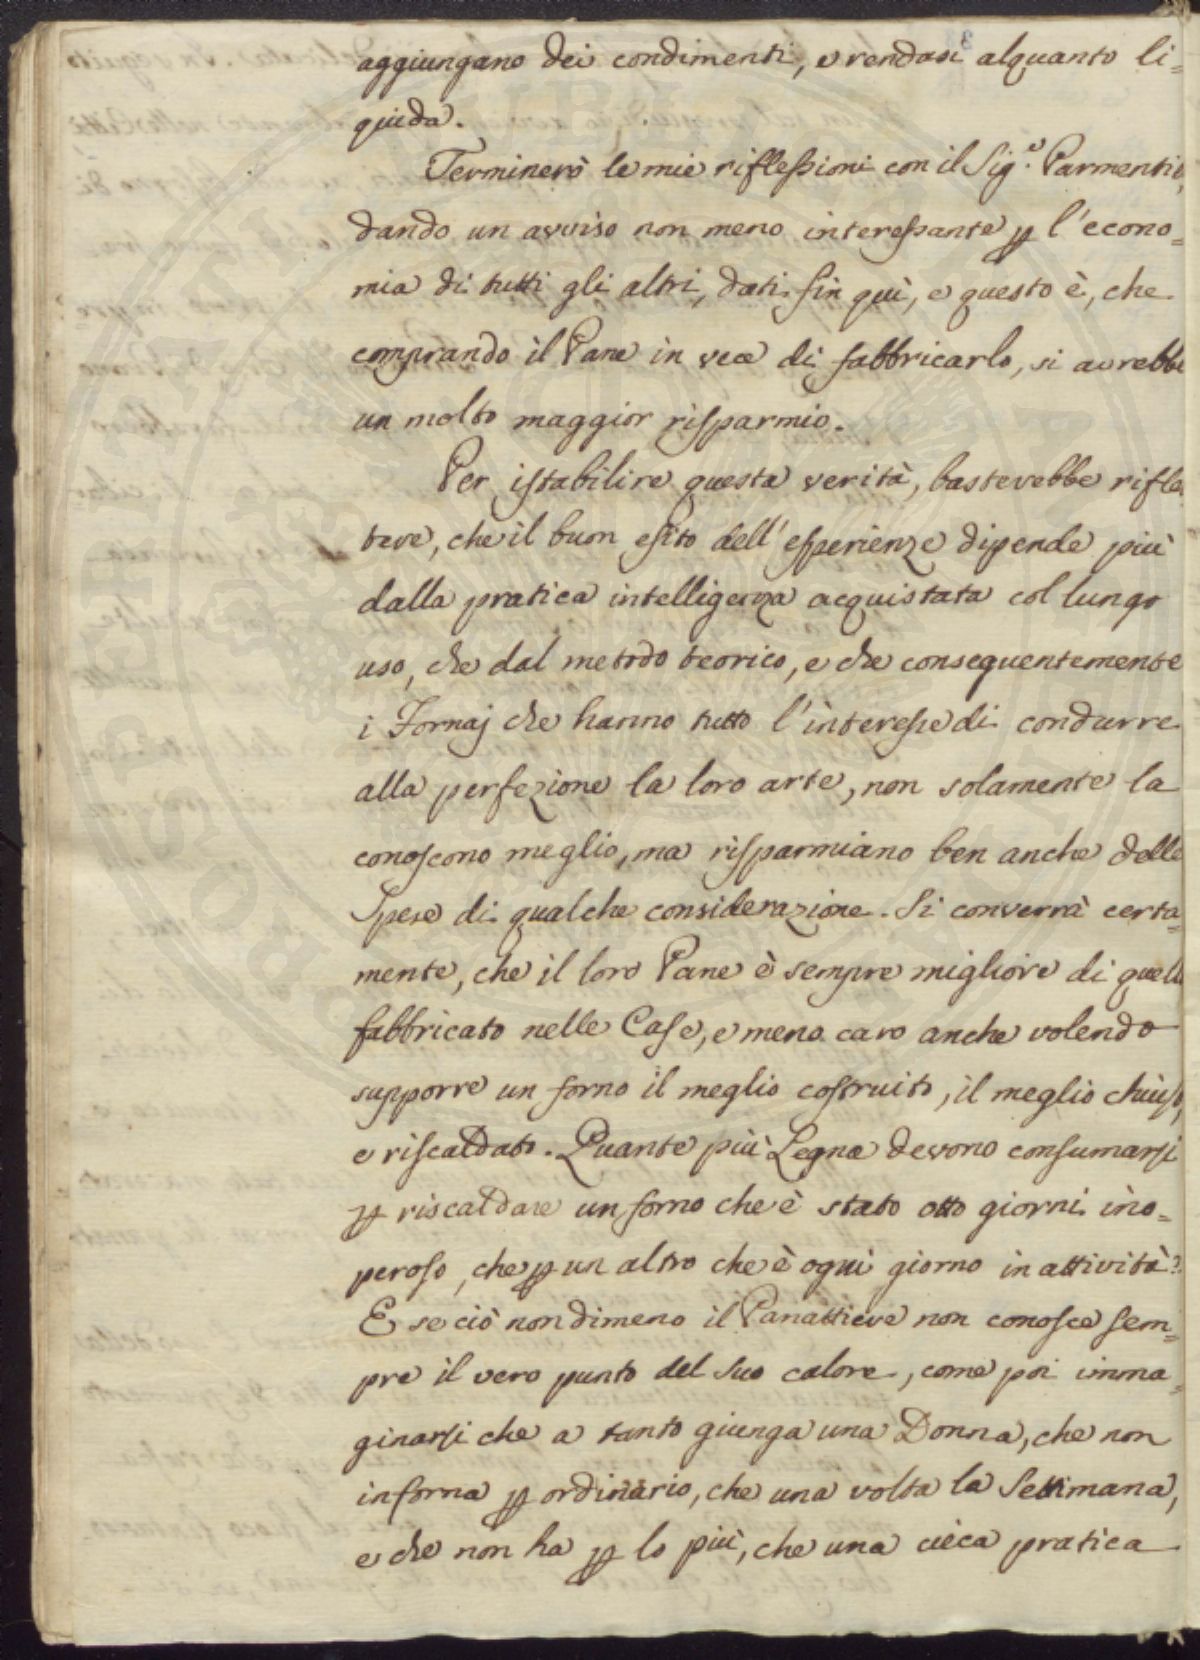 aggiungano dei condimenti, o rendasi alquanto li=
quida.
Terminerò le mie riflessioni con il Sig.e Parmentie,
dando un avviso non meno interessante p l'econo=
mia di tutti gli altri, dati fin quì, e questo è, che
comprando il Pane in vece di fabbricarlo, si avrebbe
un molto maggior risparmio.
Per istabilire questa verità, basterebbe rifle
tere, che il buon esito dell'esperienze dipende più
dalla pratica intelligenza acquistata col lungo
uso, che dal metodo teorico, e che conseguentemente
i Fornaj che hanno tutto l'interesse di condurre
alla perfezione la loro arte, non solamente la
conoscono meglio, ma risparmiano ben anche delle
Spese di qualche considerazione. Si converrà certa=
mente, che il loro Pane è sempre migliore di quello
fabbricato nelle Case, e meno caro anche volendo
supporre un forno il meglio costruito, il meglio chiuso,
e riscaldato. Quante più Legna devono consumarsi
p riscaldare un forno che è stato otto giorni ino=
peroso, che p un altro che è ogni giorno in attività?
E se ciò non dimeno il Panattiere non conosce sem=
pre il vero punto del suo calore, come poi imma=
ginarsi che a tanto giunga una Donna, che non
inforna p ordinario, che una volta la Settimana,
e che non ha p lo più, che una cieca pratica